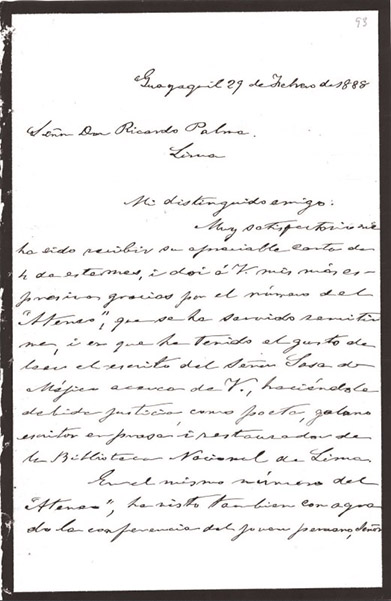 93
Guayaquil 29 de Febrero de 1888
Señor Don Ricardo Palma.
Lima
Mi distinguido amigo:
Muy satisfactorio me
ha sido recibir su apreciable carta de
4 de este mes, i doi á V. mis más es-
presivas gracias por el número del
"Ateneo", que se ha servido remitir
me, i en que he tenido el gusto de
leer el escrito del Señor Sosa de
Méjico acerca de V., haciéndole
debida justicia, como poeta, galano
escritor en prosa i restaurador de
la Biblioteca Nacional de Lima.
En el mismo número del
"Ateneo", he visto tambien con agra
do la conferencia del joven peruano, Señor